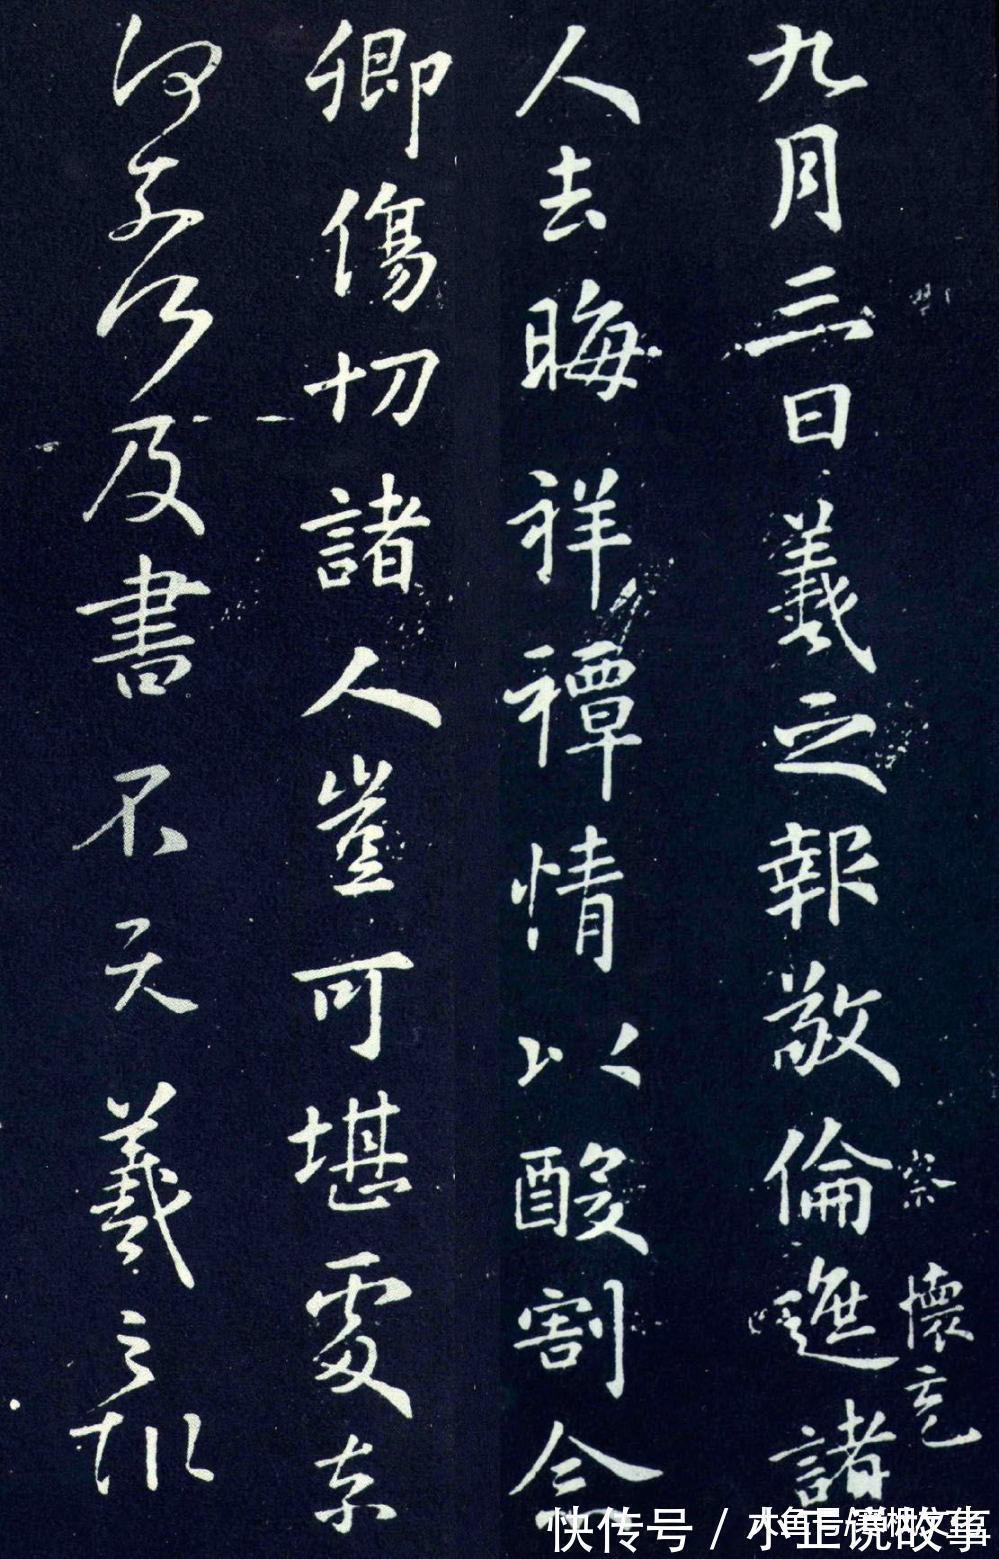 九月三日羲之報敬倫遮諸
察 懷充
人去晦祥禫情以酸割念
卿傷切諸人豈可堪處奈
何奈何及書不无羲之報
快传号 / 小正说故事